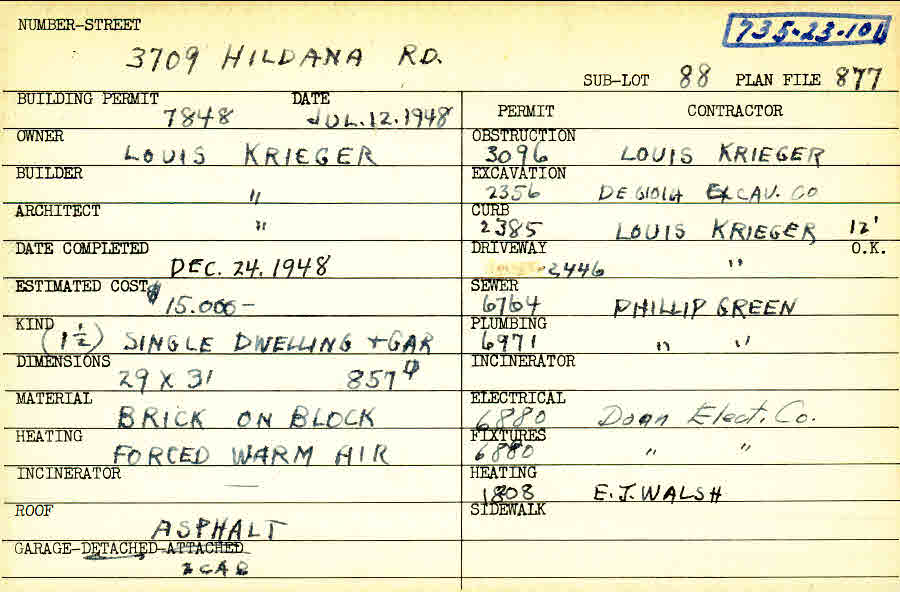 NUMBER-STREET
735-23-101
3709 HILDANA RD.
SUB-LOT 88 PLAN FILE 877
BUILDING PERMIT DATE
7848 JUL.12.1948
PERMIT CONTRACTOR
OWNER
LOUIS KRIEGER
OBSTRUCTION
3096 LOUIS KRIEGER
BUILDER
"
EXCAVATION
2356 DEGIOIA EXCAV. CO
ARCHITECT
"
CURB
2385 LOUIS KRIEGER 12'
DATE COMPLETED
DEC. 24. 1948
DRIVEWAY O.K.
2446 "
ESTIMATED COST
$15.000-
SEWER
6764 PHILLIP GREEN
KIND
(1½) SINGLE DWELLING + GAR
PLUMBING
6971 " "
DIMENSIONS
29 X 31 857
INCINERATOR
MATERIAL
BRICK ON BLOCK
ELECTRICAL
6880 Doan Elect. Co.
HEATING
FORCED WARM AIR
FIXTURES
6880 " "
INCINERATOR
—
HEATING
1808 E.J. WALSH
ROOF
ASPHALT
SIDEWALK
GARAGE-DETACHED-ATTACHED
2 CAR